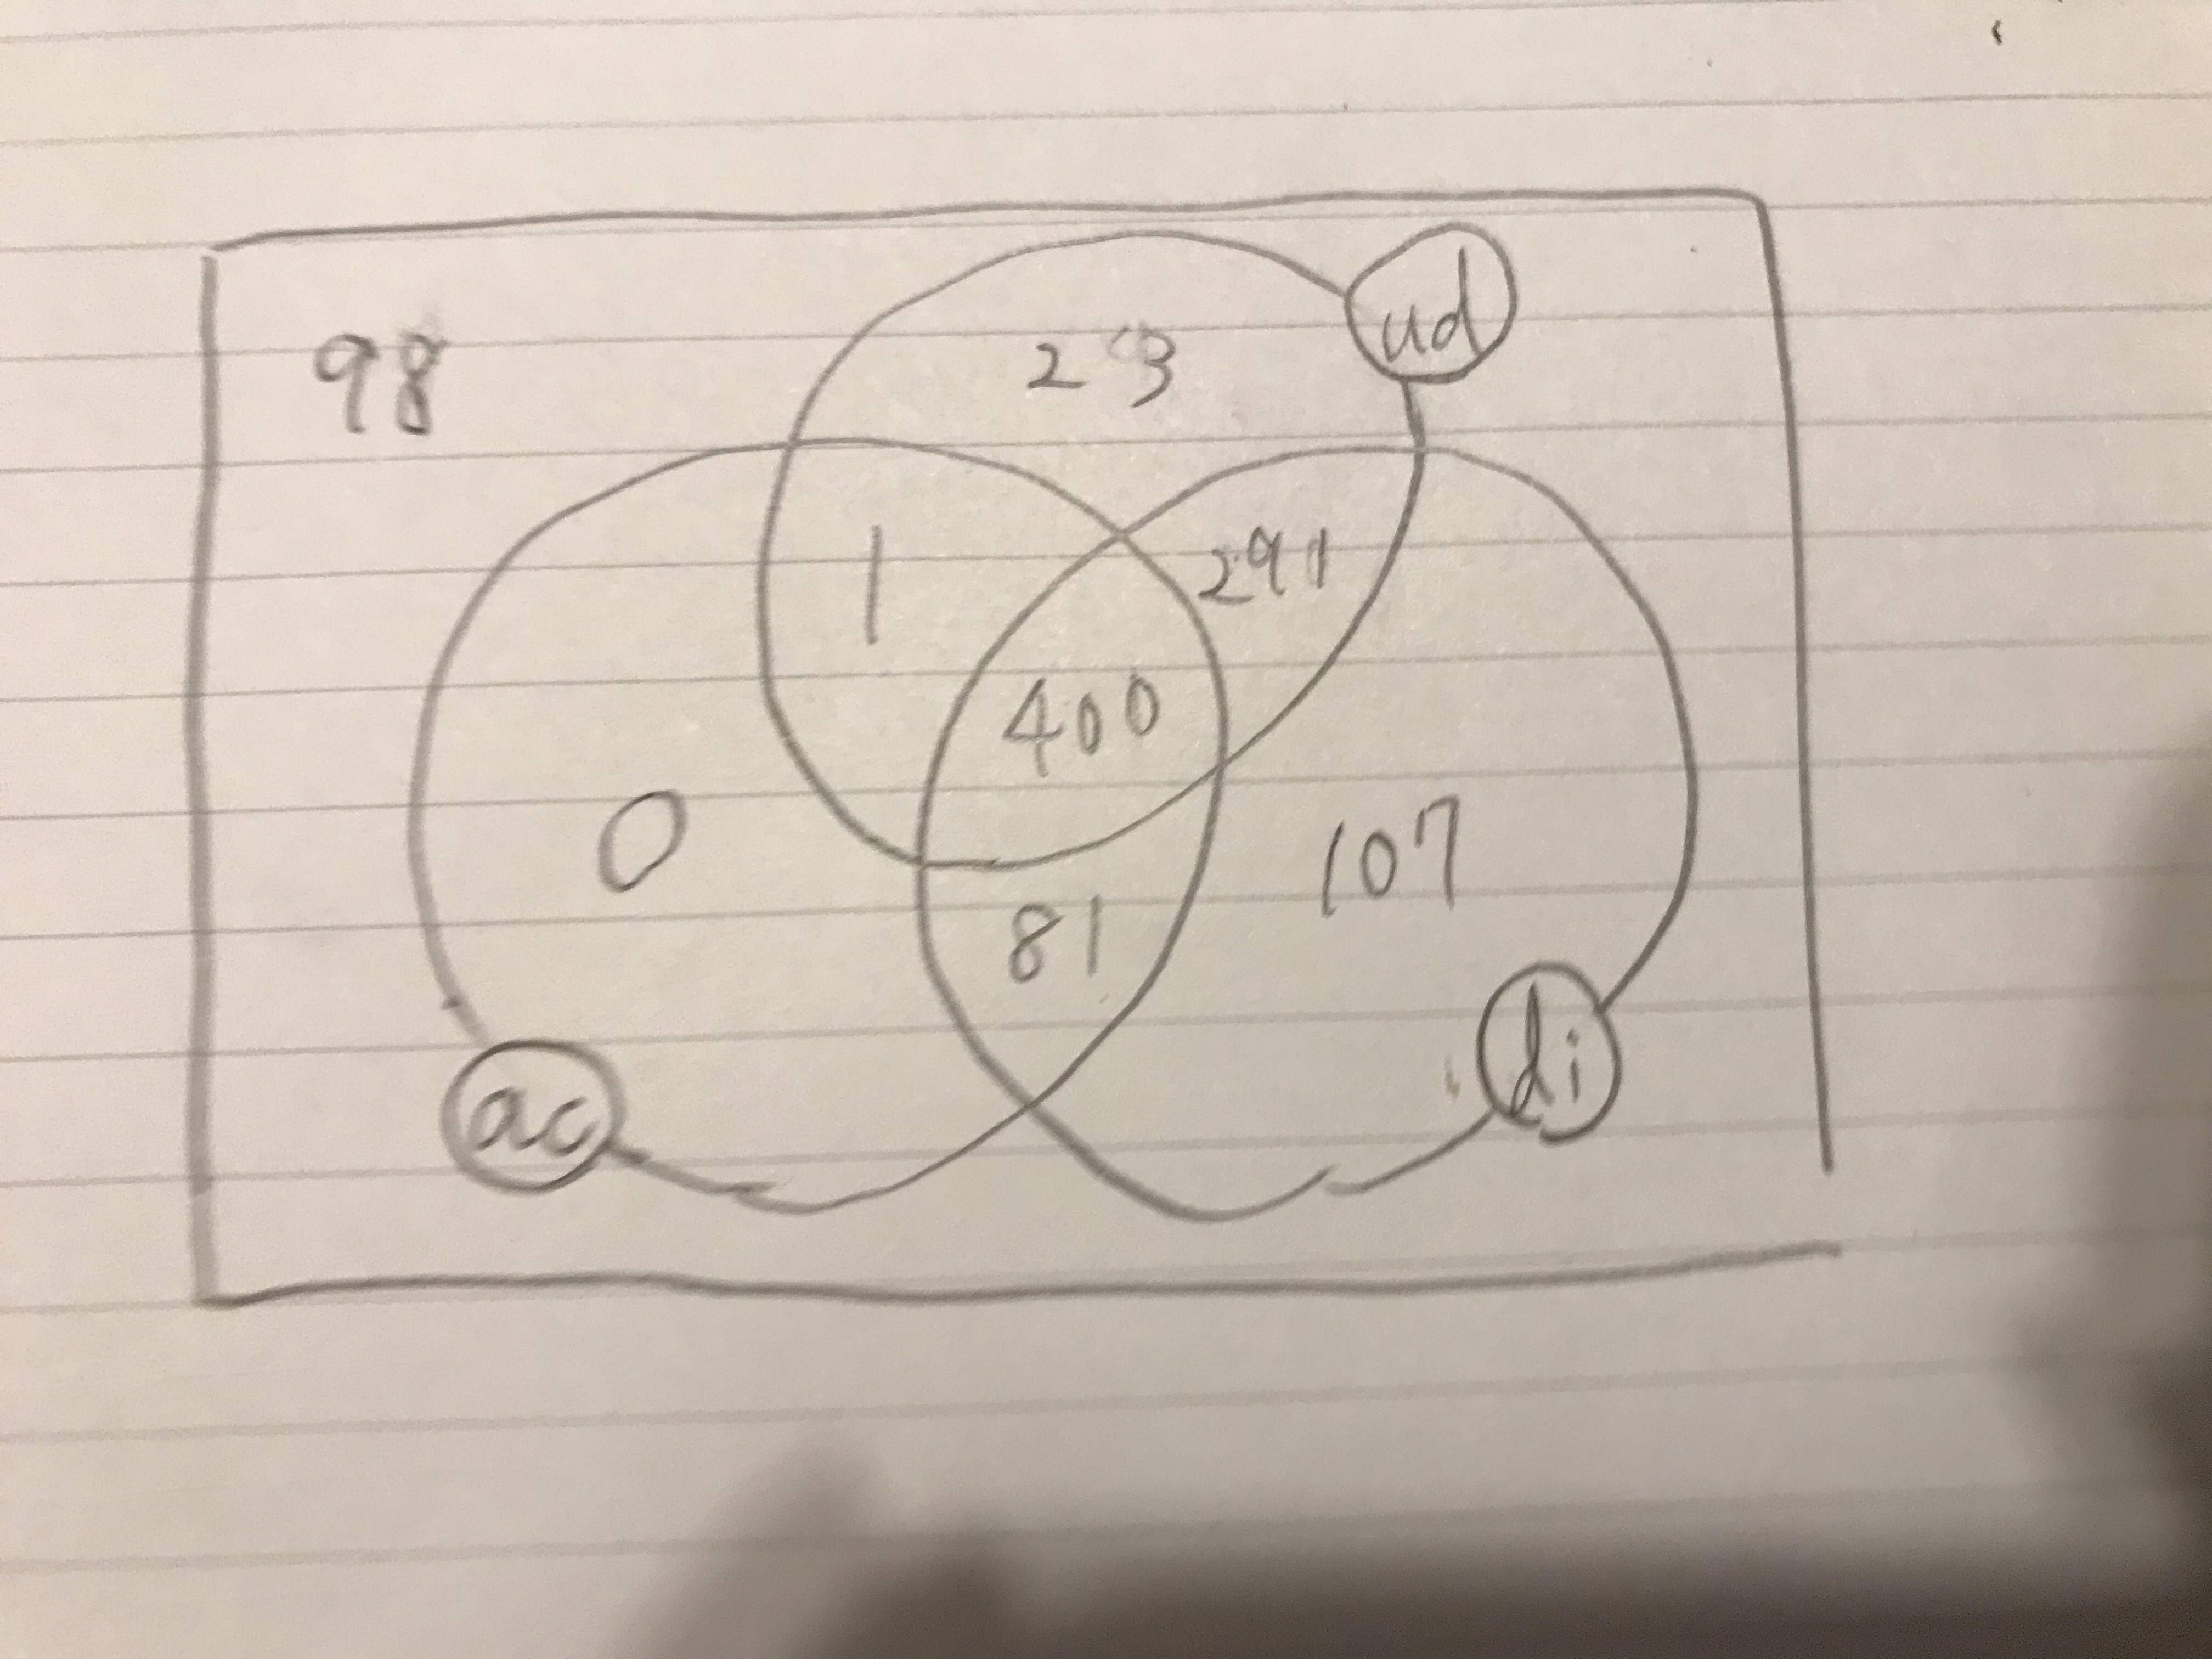 98
23
ud
1
291
400
0
107
81
ac
di